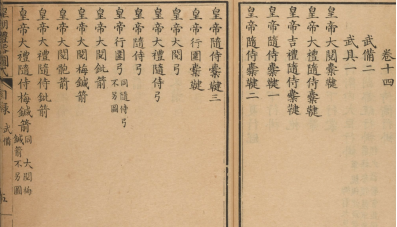 卷十四
武備二
武具一
皇帝大閱櫜鞬
皇帝大禮隨侍櫜鞬
皇帝吉禮隨侍櫜鞬
皇帝隨侍櫜鞬一
皇帝隨侍櫜鞬二
皇帝隨侍櫜鞬三
皇帝行圍櫜鞬
皇帝大閱弓
皇帝大禮隨侍弓
皇帝隨侍弓
皇帝行圍弓同隨侍弓不另圖
皇帝大閱鈚箭
皇帝大閱梅鍼箭
皇帝大閱骲箭
皇帝大禮隨侍鈚箭
皇帝大禮隨侍梅鍼箭同大閱梅鍼箭不另圖
皇朝禮器圖式 目錄 武備 五